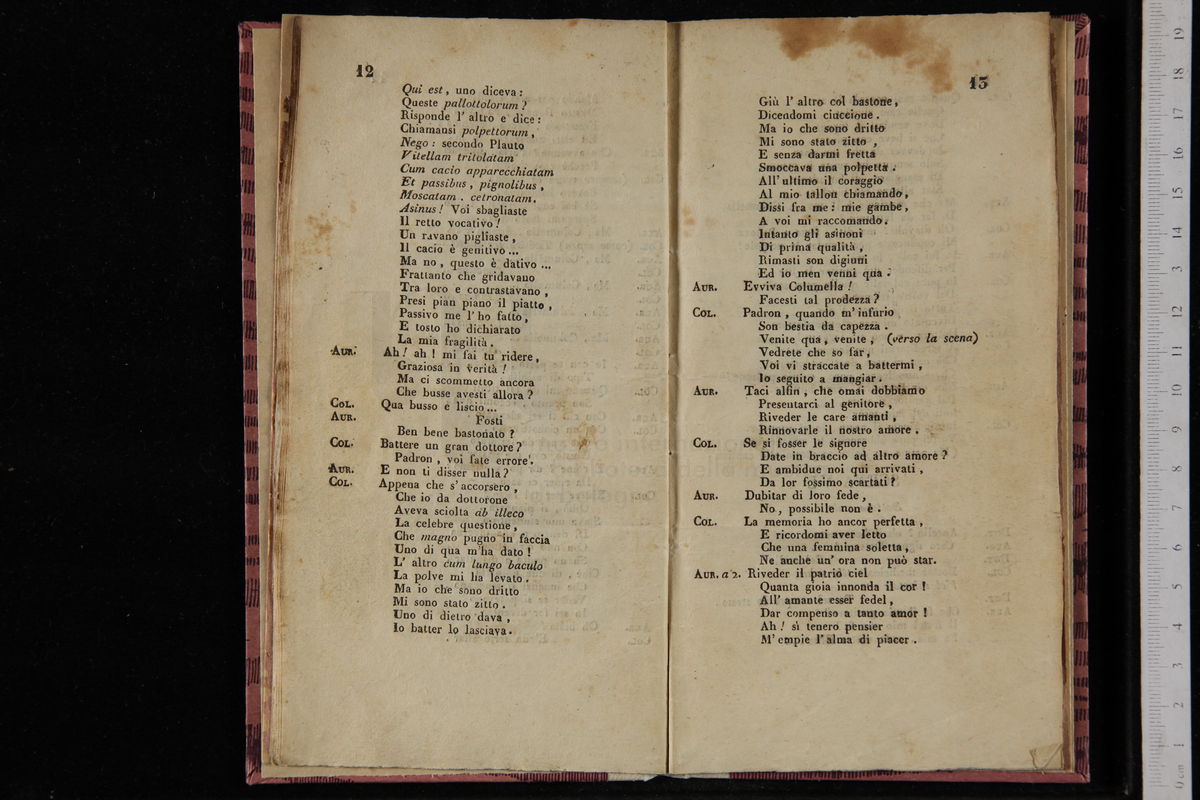 12
Qui est, uno diceva:
Queste pallottolorum?
Risponde l' altro e dice:
Chiamansi polpettorum,
Nego: secondo Plauto
Vitellam tritolatam
Cum cacio apparecchiatam
Et passibus, pignolibus,
Moscatam. cetronatam.
Asinus! Voi sbagliaste
Il retto vocativo!
Un ravano pigliaste,
Il cacio è genitivo...
Ma no, questo è dativo...
Frattanto che gridavano
Tra loro e contrastavano,
Presi pian piano il piatto,
Passivo me l' ho fatto,
E tosto ho dichiarato
La mia fragilità.
AUR. Ah! ah! mi fai tu ridere,
Graziosa in verità!
Ma ci scommetto ancora
Che busse avesti allora?
COL. Qua busso e liscio...
AUR. Fosti
Ben bene bastonato?
COL. Battere un gran dottore?
Padron, voi fate errore.
AUR. E non ti disser nulla?
COL. Appena che s' accorsero,
Che io da dottorone
Aveva sciolta ab illeco
La celebre questione,
Che magno pugno in faccia
Uno di qua m'ha dato!
L' altro cum lungo baculo
La polve mi ha levato.
Ma io che sono dritto
Mi sono stato zitto.
Uno di dietro dava,
Io batter lo lasciava.
13
Giù l' altro col bastone,
Dicendomi ciuccione.
Ma io che sono dritto
Mi sono stato zitto,
E senza darmi fretta
Smoccava una polpetta.
All' ultimo il coraggio
Al mio tallon chiamando,
Dissi fra me: mie gambe,
A voi mi raccomando.
Intanto gli asinoni
Di prima qualità,
Rimasti son digiuni
Ed io men venni qua.
AUR. Evviva Columella!
Facesti tal prodezza?
COL. Padron, quando m' infurio
Son bestia da capezza.
Venite qua, venite, (verso la scena)
Vedrete che so far,
Voi vi straccate a battermi,
Io seguito a mangiar.
AUR. Taci alfin, che omai dobbiamo
Presentarci al genitore,
Riveder le care amanti,
Rinnovarle il nostro amore.
COL. Se si fosser le signore
Date in braccio ad altro amore?
E ambidue noi qui arrivati,
Da lor fossimo scartati?
AUR. Dubitar di loro fede,
No, possibile non è.
COL. La memoria ho ancor perfetta,
E ricordomi aver letto
Che una femmina soletta,
Ne anche un' ora non può star.
AUR. a 2. Riveder il patrio ciel
Quanta gioia innonda il cor!
All' amante esser fedel,
Dar compenso a tanto amor!
Ah! sì tenero pensier
M' empie l' alma di piacer.
0 cm 1 2 3 4 5 6 7 8 9 10 11 12 13 14 15 16 17 18 19